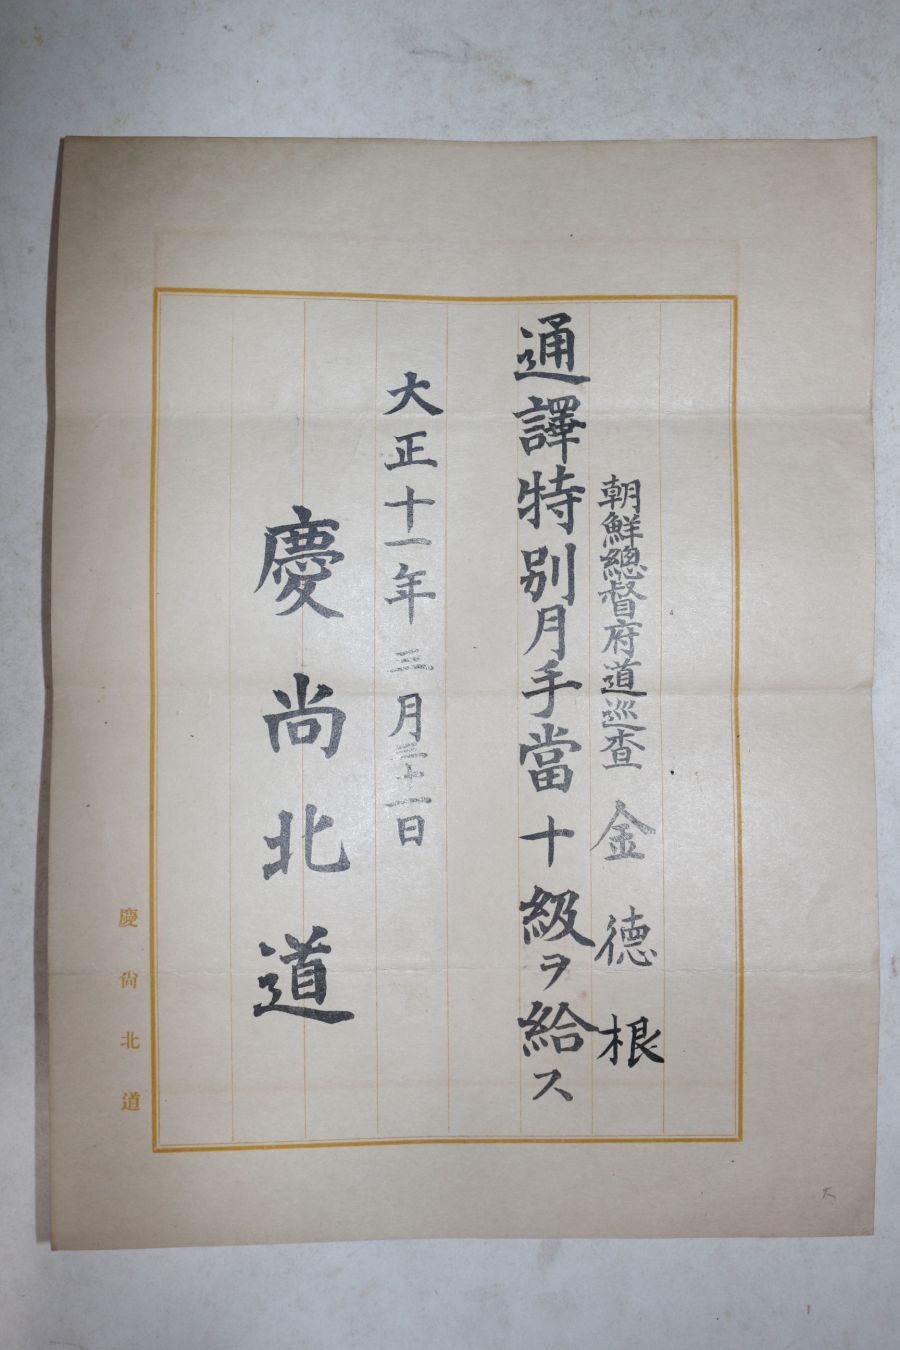 朝鮮總督府道巡査 金德根
通譯特別月手當十級ヲ給ス
大正十一年三月三十一日
慶尚北道
慶尚北道